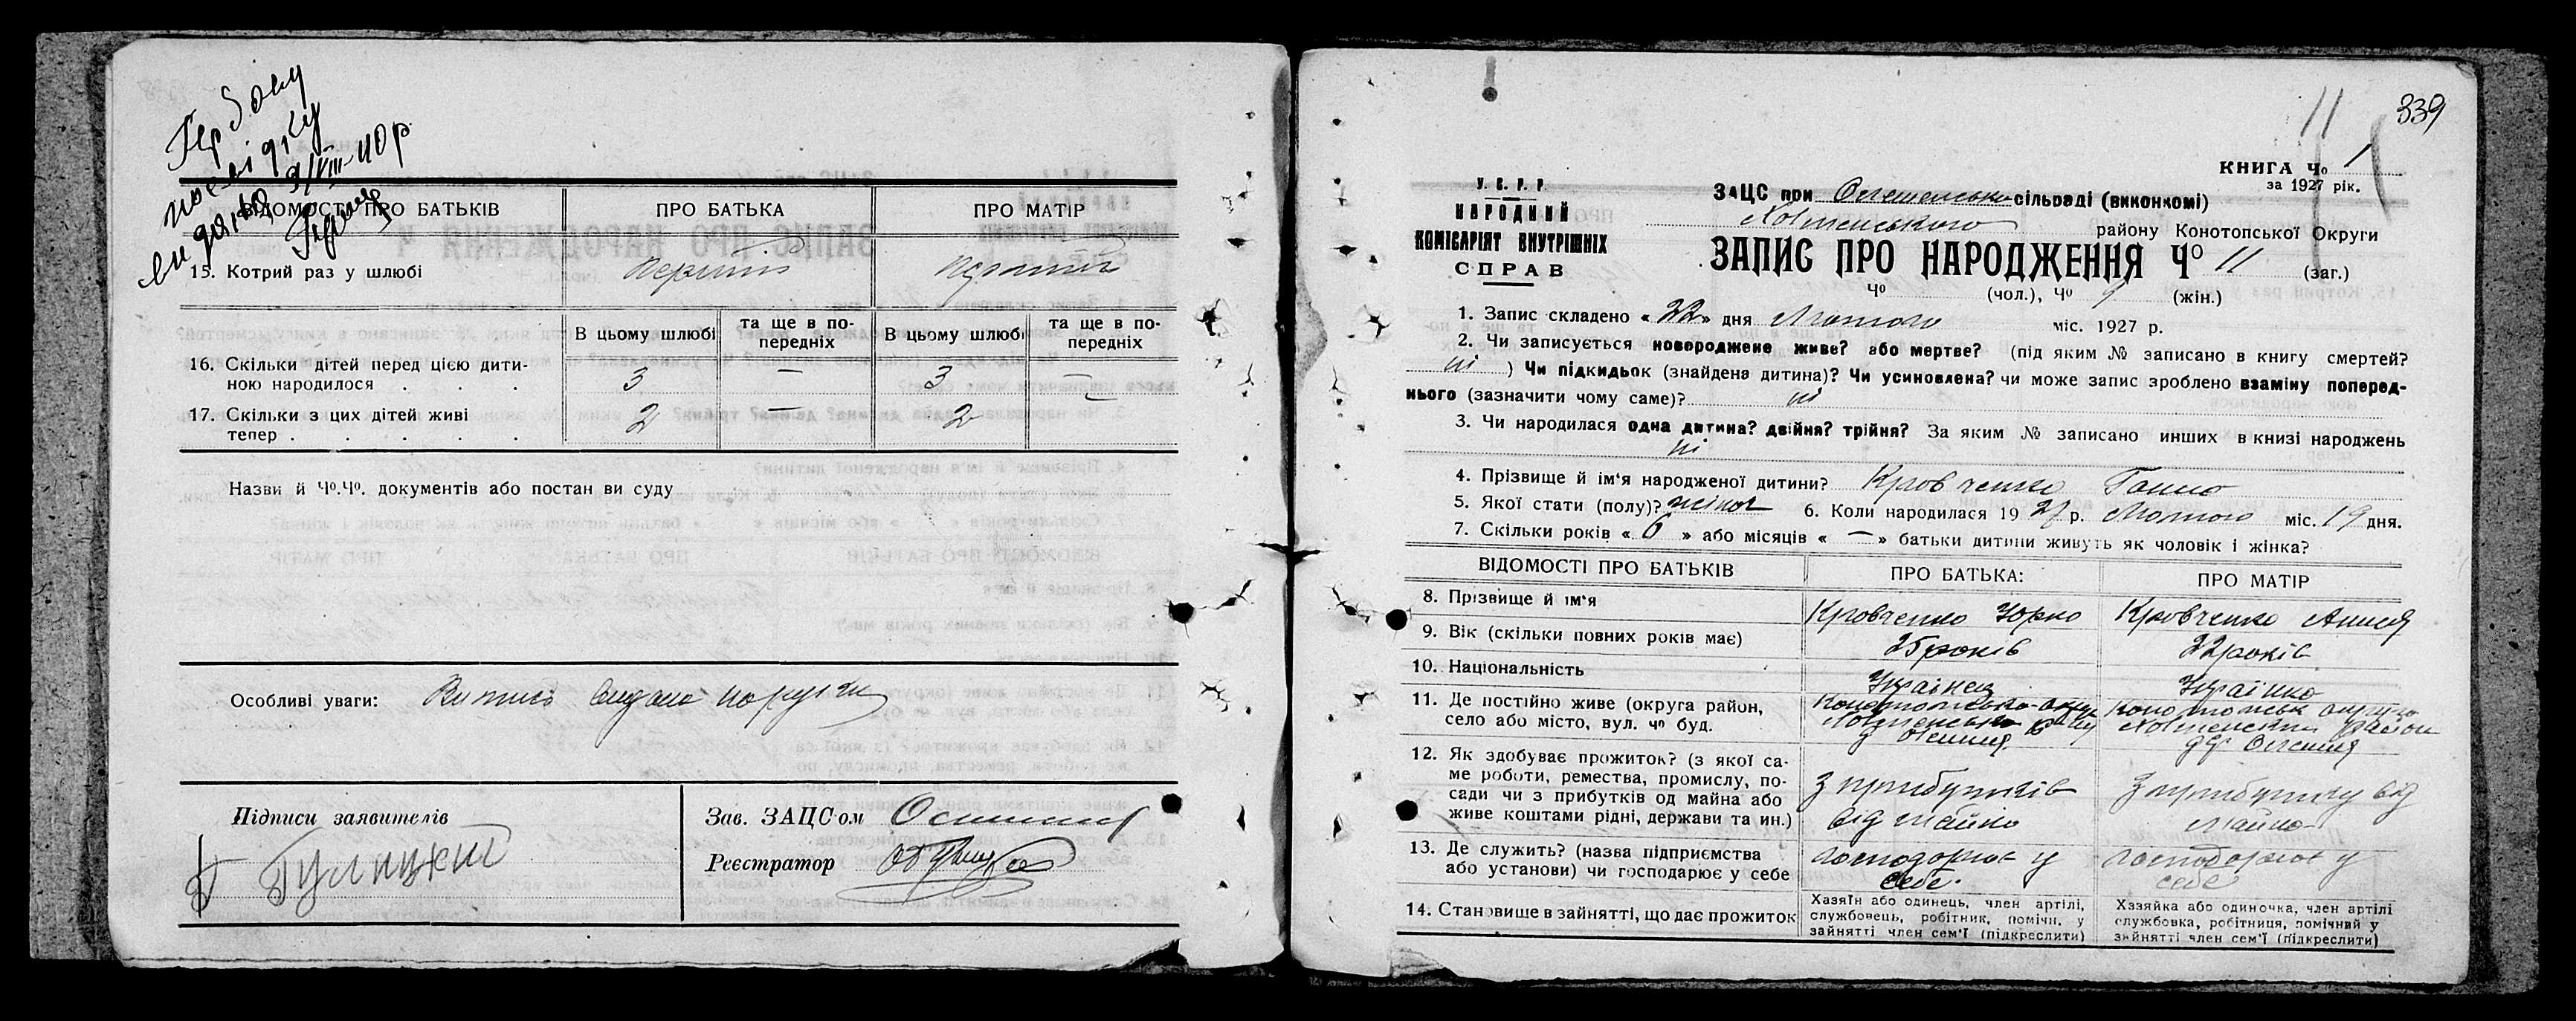 Гербову
посвідку
видано 9/VIII-40 р.
ВІДОМОСТІ ПРО БАТЬКІВ ПРО БАТЬКА ПРО МАТІР
15. Котрий раз у шлюбі перший
В цьому шлюбі та ще в по-передніх В цьому шлюбі та ще в по-передніх
16. Скільки дітей перед цією дити-
ною народилося . . . 3 — 3 —
17. Скільки з цих дітей живі
тепер . . . . . 2 — 2 —
Назви й Чо.Чо. документів або постан ви суду
Особливі уваги: Витись видано на руки
Підписи заявителів
Зав. ЗАЦС-ом
Реєстратор
11
339
КНИГА Чо 1
за 1927 рік.
У. С. Р. Р.
НАРОДНИЙ
КОМІСАРІЯТ ВНУТРІШНІХ
СПРАВ
ЗАЦС при сільраді (виконкомі)
Хотменського району Конотопської Округи
ЗАПИС ПРО НАРОДЖЕННЯ Чо 11 (заг.)
Чо (чол.), Чо 9 (жін.)
1. Запис складено « 22 » дня Лютого міс. 1927 р.
2. Чи записується новороджене живе? або мертве? (під яким № записано в книгу смертей?
ні ) Чи підкидьок (знайдена дитина)? Чи усиновлена? чи може запис зроблено взаміну поперед-
нього (зазначити чому саме)? ні
3. Чи народилася одна дитина? двійня? трійня? За яким № записано инших в книзі народжень
ні
4. Прізвище й ім'я народженої дитини? Кровченко Ганна
5. Якої стати (полу)? жіноч 6. Коли народилася 19 27 р. Лютого міс. 19 дня.
7. Скільки років « 6 » або місяців « — » батьки дитини живуть як чоловік і жінка?
ВІДОМОСТІ ПРО БАТЬКІВ ПРО БАТЬКА: ПРО МАТІР
8. Прізвище й ім'я Кровченко Юрко Кровченко Анися
9. Вік (скільки повних років має) 25 років 22 років
10. Національність Українец Українка
11. Де постійно живе (округа район,
село або місто, вул. чо буд.
12. Як здобуває прожиток? (з якої са-
ме роботи, ремества, промислу, по-
сади чи з прибутків од майна або
живе коштами рідні, держави та ин.)
З прибутків
від майна
З прибутку від
майна
13. Де служить? (назва підприємства
або установи) чи господарює у себе
господарює у
себе.
господарює у
себе
14. Становище в зайнятті, що дає прожиток
Хазяїн або одинець, член артілі,
службовець, робітник, помічн. у
зайнятті член сем'ї (підкреслити)
Хазяйка або одиночка, член артілі
службовка, робітниця, помічний у
зайнятті член сем'ї (підкреслити)